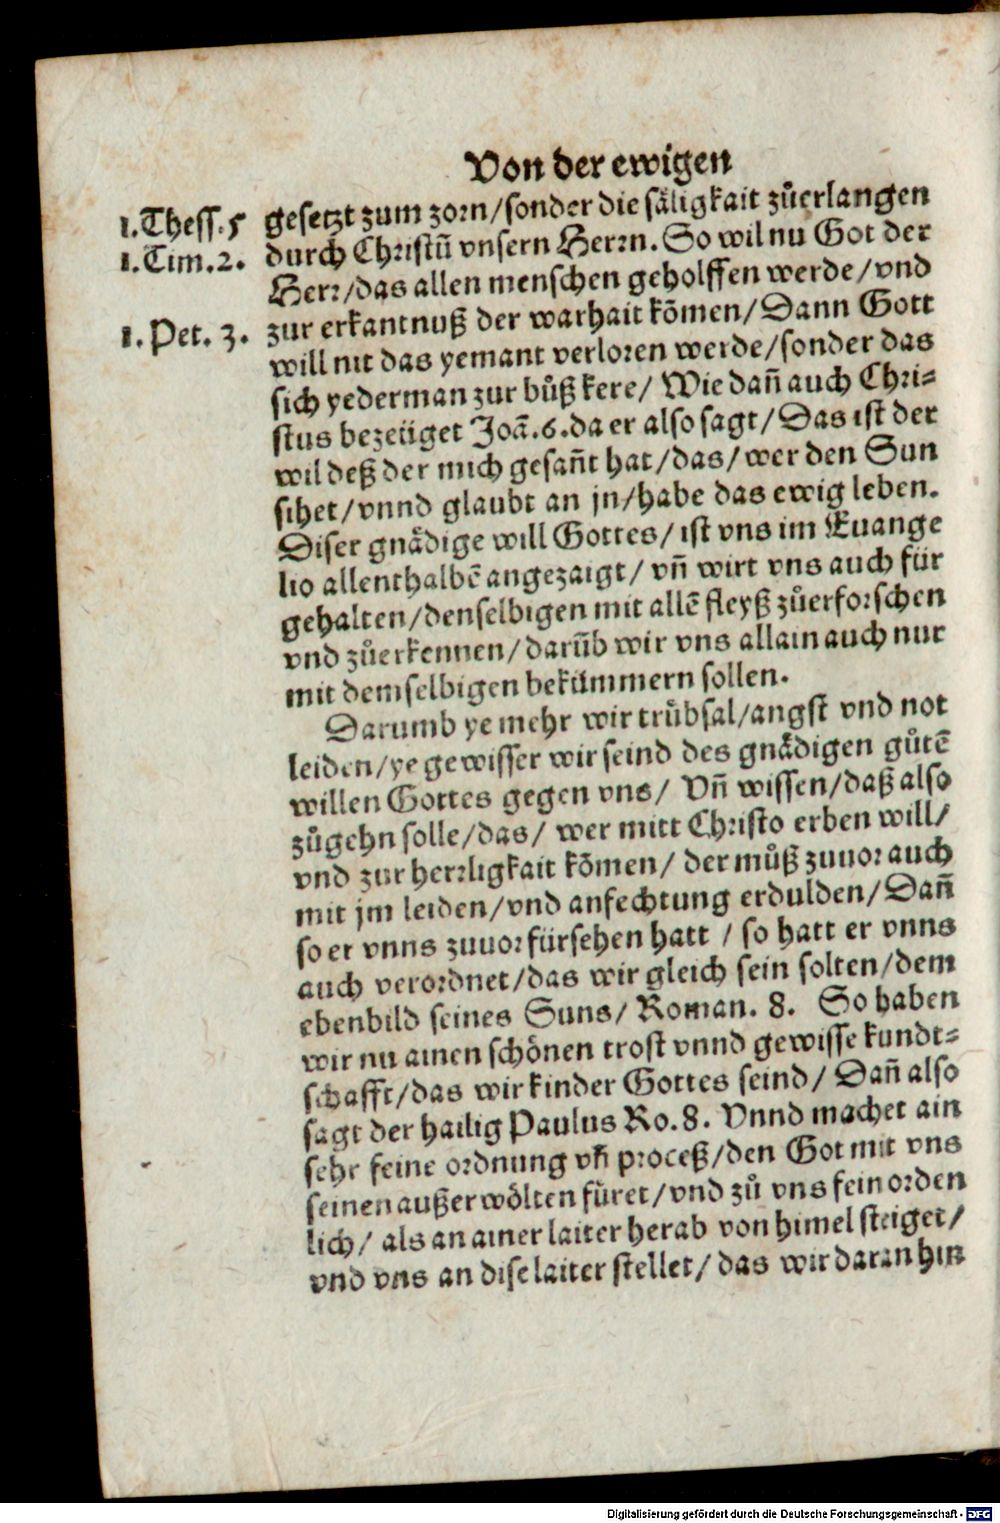 Von der ewigen
1.Thess.5 gesetzt zum zorn/sonder die säligkait zůerlangen
1.Tim.2. durch Christū vnsern Herrn. So wil nu Got der
Herr/das allen menschen geholffen werde/vnd
1.Pet.3. zur erkantnuß der warhait kõmen/Dann Gott
will nit das yemant verloren werde/sonder das
sich yederman zur bůß kere/ Wie dañ auch Chri=
stus bezeüget Joã.6.da er also sagt/Das ist der
wil deß der mich gesañt hat/das/wer den Sun
sihet/vnnd glaubt an jn/habe das ewig leben.
Diser gnädige will Gottes/ ist vns im Euange
lio allenthalbẽ angezaigt/ vñ wirt vns auch für
gehalten/denselbigen mit allẽ fleyß zůerforschen
vnd zůerkennen/darũb wir vns allain auch nur
mit demselbigen bekümmern sollen.
Darumb ye mehr wir trübsal/angst vnd not
leiden/ye gewisser wir seind des gnädigen gůtẽ
willen Gottes gegen vns/ Vñ wissen/daß also
zůgehn solle/das/ wer mitt Christo erben will/
vnd zur herrligkait kõmen/ der můß zuuor auch
mit jm leiden/vnd anfechtung erdulden/Dañ
so er vnns zuuor fürsehen hatt / so hatt er vnns
auch verordnet/das wir gleich sein solten/dem
ebenbild seines Suns/ Roman. 8. So haben
wir nu ainen schönen trost vnnd gewisse kundt=
schafft/das wir kinder Gottes seind/ Dañ also
sagt der hailig Paulus Ro.8. Vnnd machet ain
sehr feine ordnung vñ proceß/den Got mit vns
seinen außerwölten füret/vnd zů vns fein orden
lich/ als an ainer laiter herab von himel steiget/
vnd vns an dise laiter stellet/ das wir daran hin
Digitalisierung gefördert durch die Deutsche Forschungsgemeinschaft - DFG